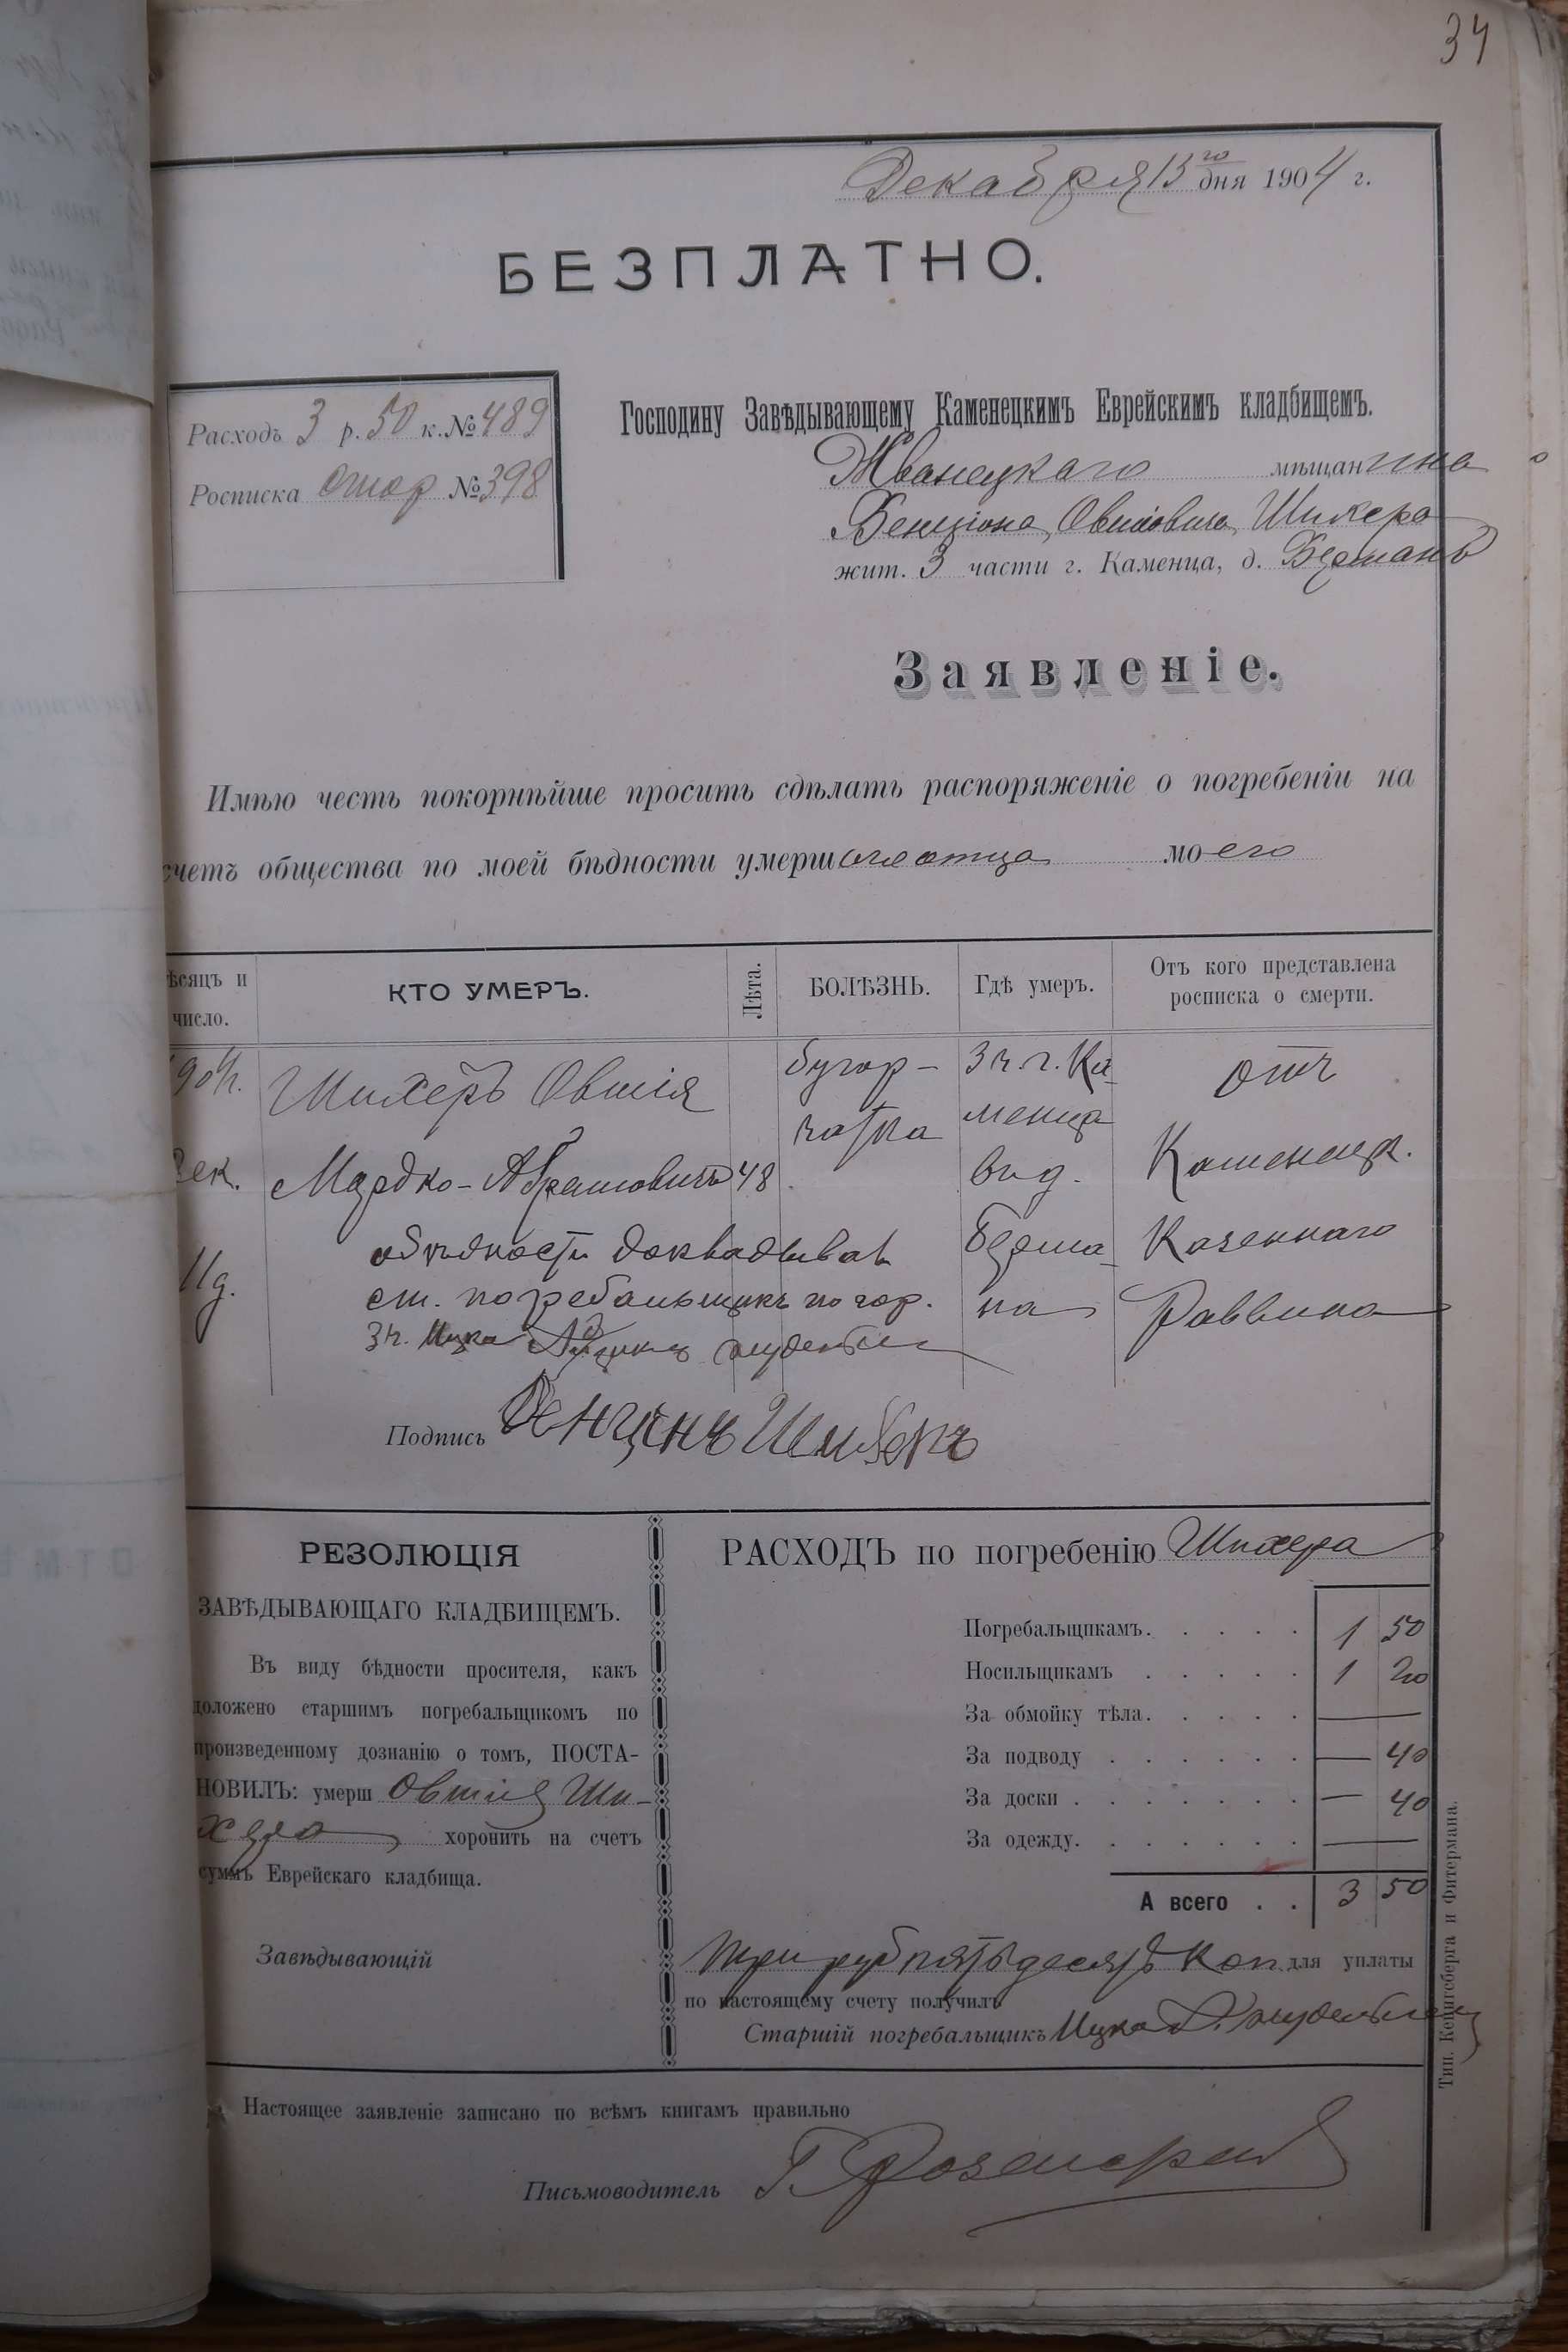 34
Декабря 13 го дня 1904 г.
БЕЗПЛАТНО.
Расходъ 3 р. 50 к. № 489
Росписка стор № 398
Господину Завѣдывающему Каменецкимъ Еврейскимъ кладбищемъ.
Жванецкаго мѣщанина
Бенціона Овшіовича Шихера
жит. 3 части г. Каменца, д. Бермань
Заявленіе.
Имѣю честь покорнѣйше просить сдѣлать распоряженіе о погребеніи на
счетъ общества по моей бѣдности умершаго отца моего
ѣсяцъ и число.
КТО УМЕРЪ.
Лѣта.
БОЛѢЗНЬ.
Гдѣ умеръ.
Отъ кого представлена росписка о смерти.
904г. Шихеръ Овшія бугор- 3 ч. г. Ка- отъ
Дек. Мордко-Абрамовичъ 48 чатка менца Каменецк.
въ д.
о бѣдности докладывалъ Берма- Казеннаго
ст. погребальщикъ по гор. на Раввина
3 ч. Ицко
Подпись Бенцинъ Шихеръ
РЕЗОЛЮЦІЯ
ЗАВѢДЫВАЮЩАГО КЛАДБИЩЕМЪ.
Въ виду бѣдности просителя, какъ
доложено старшимъ погребальщикомъ по
произведенному дознанію о томъ, ПОСТА-
НОВИЛЪ: умерш Овшія Ши-
хера хоронить на счетъ
суммъ Еврейскаго кладбища.
Завѣдывающій
РАСХОДЪ по погребенію Шихера
Погребальщикамъ. . . . . 1 50
Носильщикамъ . . . . . 1 20
За обмойку тѣла. . . . . —
За подводу . . . . . . — 40
За доски . . . . . . . — 40
За одежду. . . . . . . —
А всего . . 3 50
Три руб пятьдесятъ коп для уплаты
по настоящему счету получилъ
Старшій погребальщикъ Ицко
Тип. Кенигсберга и Фитермана.
Настоящее заявленіе записано по всѣмъ книгамъ правильно
Письмоводитель Г.